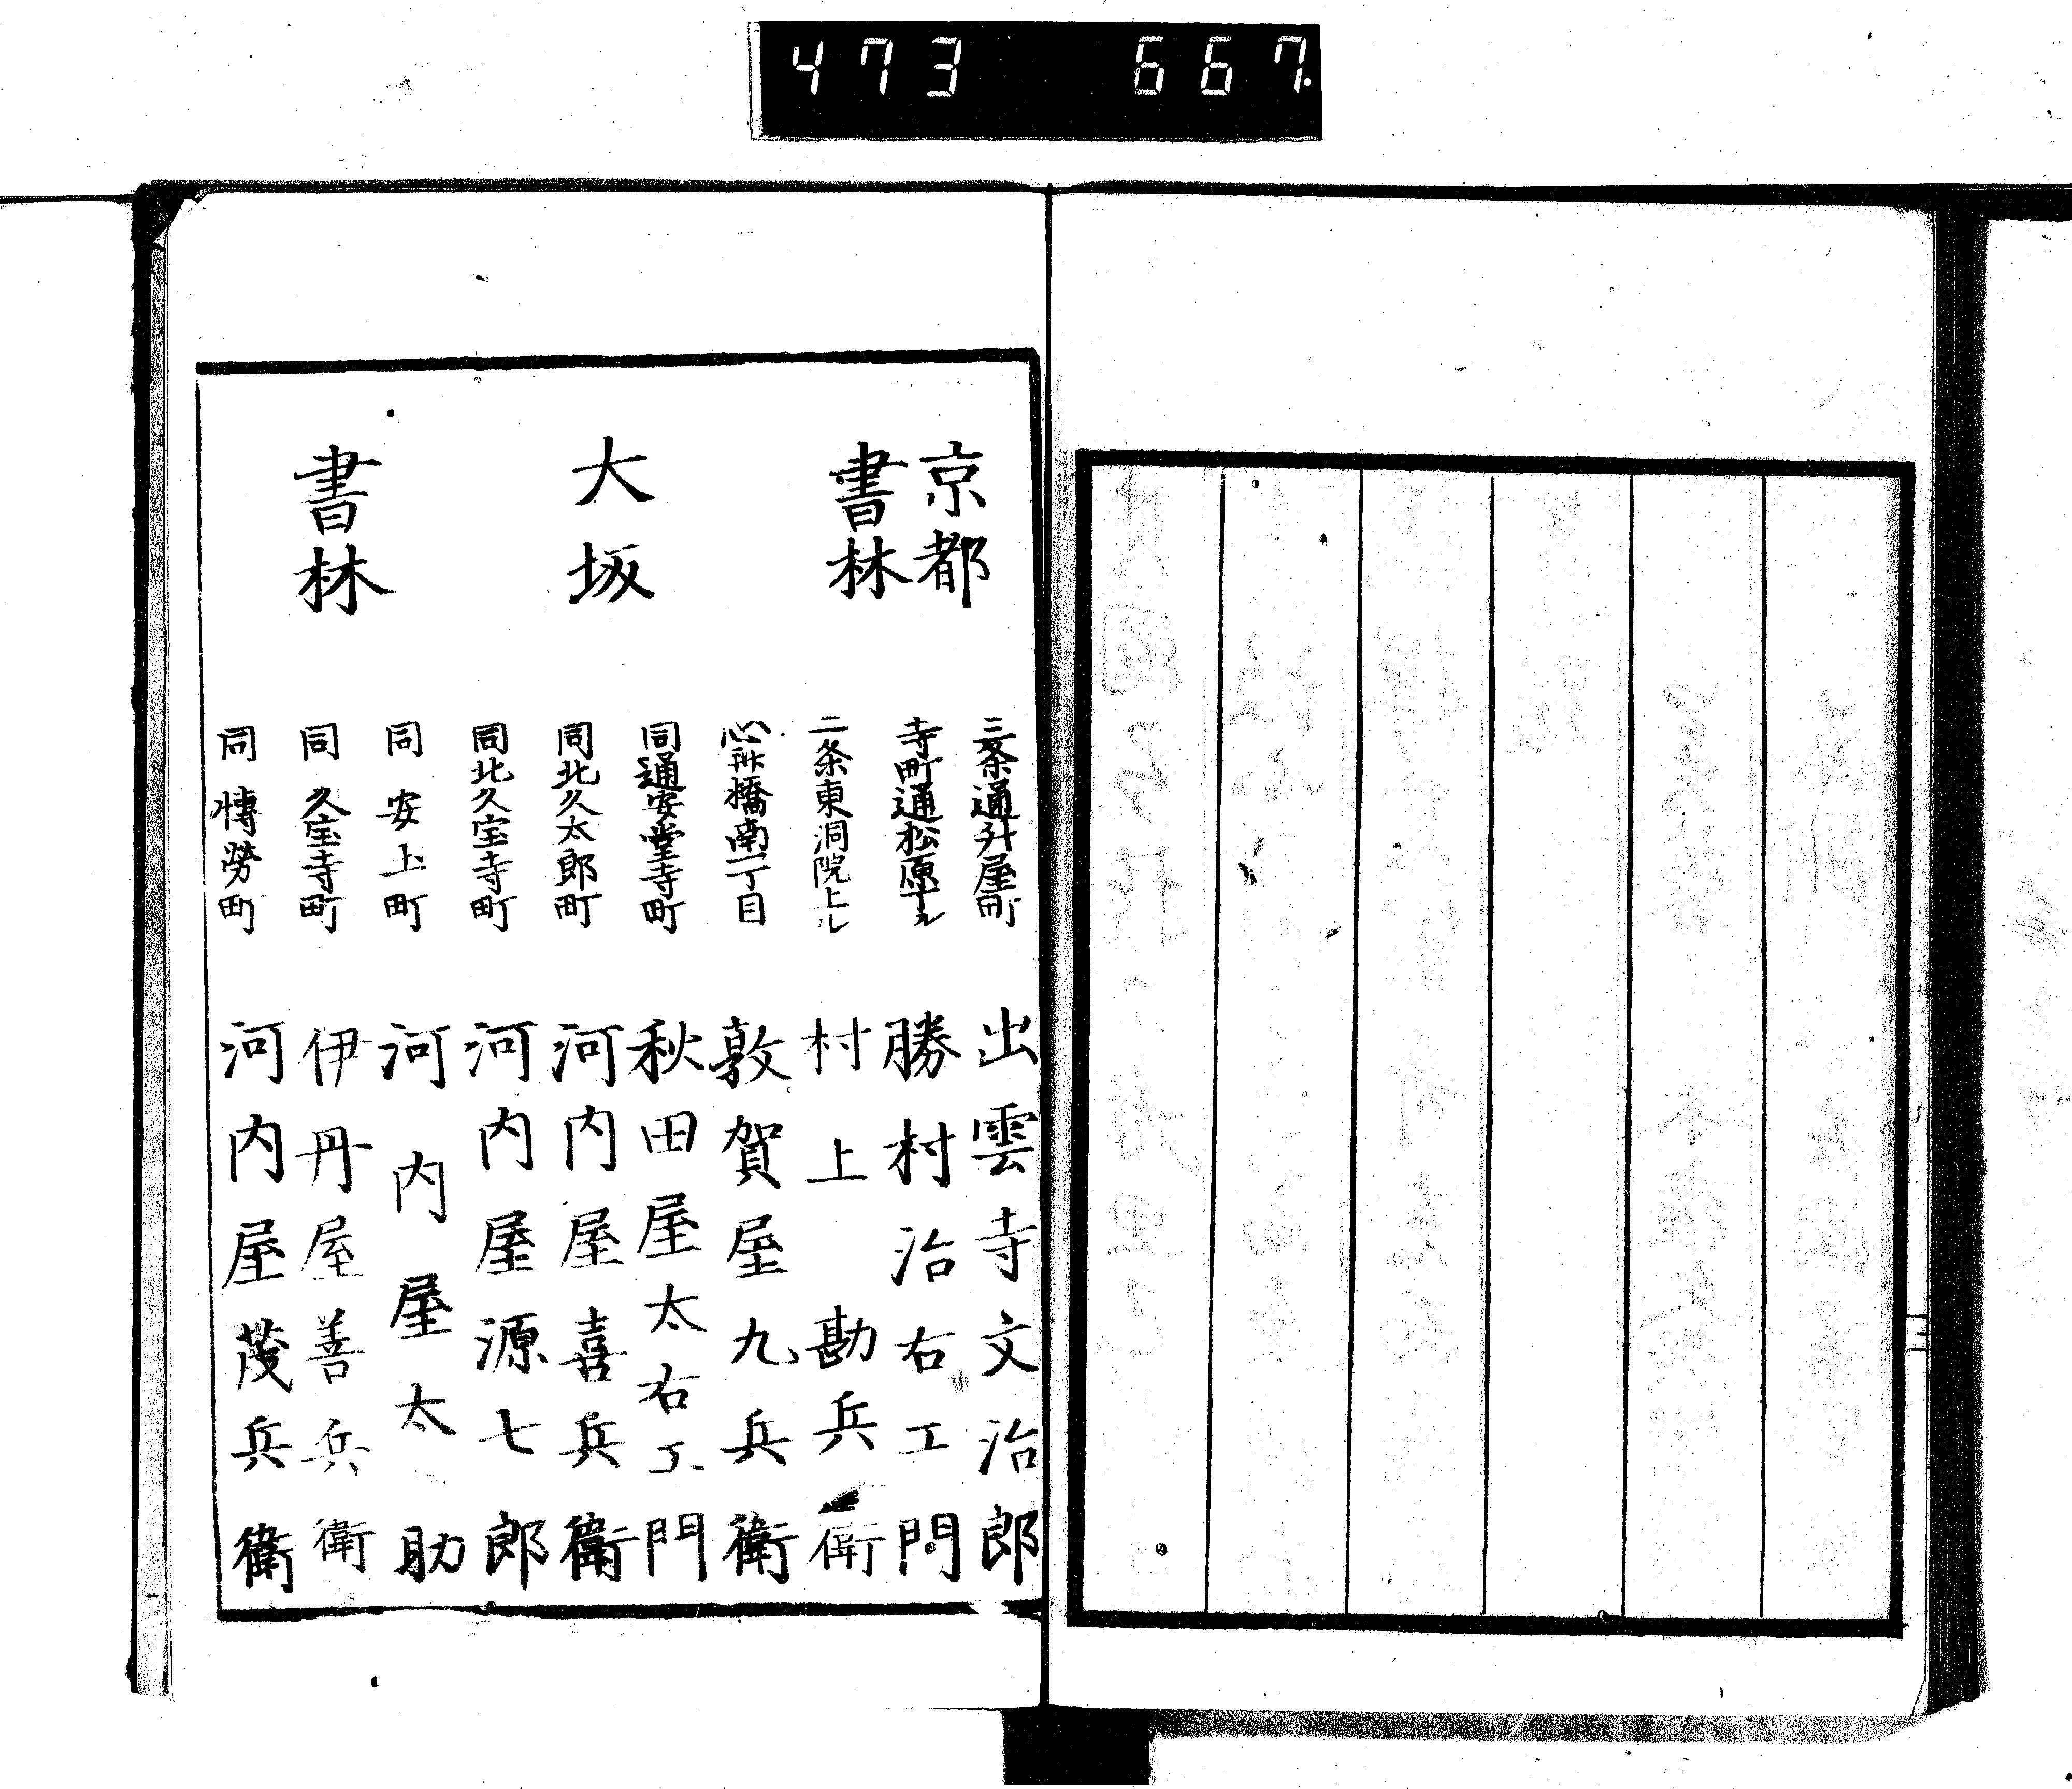 473 667.
京都
書林
三条通升屋町 出雲寺文治郎
寺町通松原下ル 勝村治右エ門
二条東洞院上ル 村上勘兵衛
大坂
書林
心斎橋南一丁目 敦賀屋九兵衛
同通安堂寺町 秋田屋太右エ門
同北久太郎町 河内屋喜兵衛
同北久宝寺町 河内屋源七郎
同安土町 河内屋太助
同久宝寺町 伊丹屋善兵衛
同博労町 河内屋茂兵衛